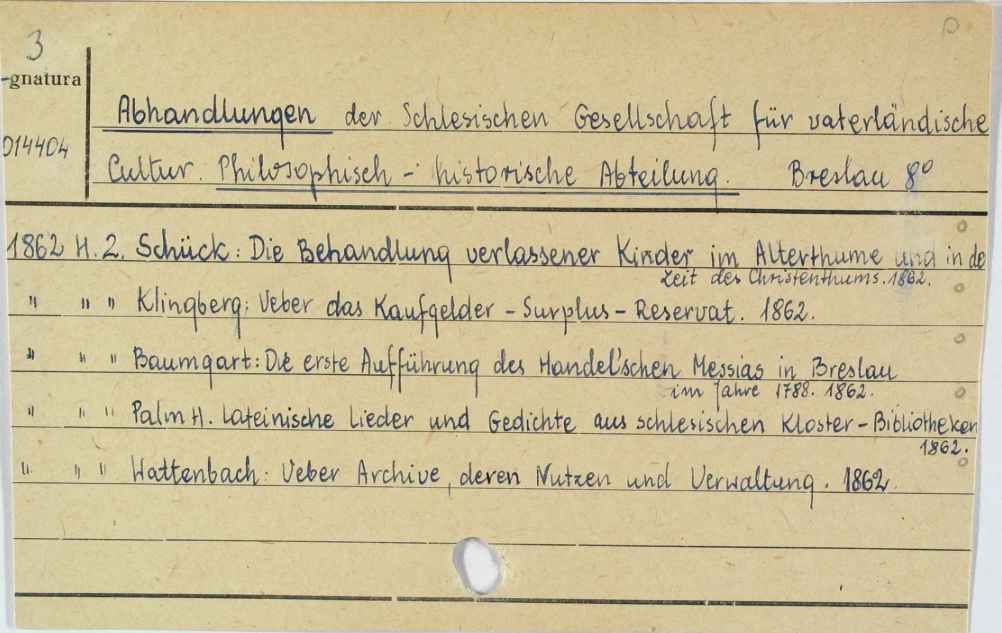 3
gnatura
014404
Abhandlungen der Schlesischen Gesellschaft für vaterländische
Cultur. Philosophisch - historische Abteilung. Breslau 8°
1862 H. 2. Schück: Die Behandlung verlassener Kinder im Alterthume und in de
Zeit des Christenthums. 1862.
" " " Klingberg: Ueber das Kaufgelder - Surplus - Reservat. 1862.
" " " Baumgart: Die erste Aufführung des Handel'schen Messias in Breslau
im Jahre 1788. 1862.
" " " Palm H. Lateinische Lieder und Gedichte aus schlesischen Kloster - Bibliotheken
1862.
" " " Wattenbach: Ueber Archive, deren Nutzen und Verwaltung. 1862.